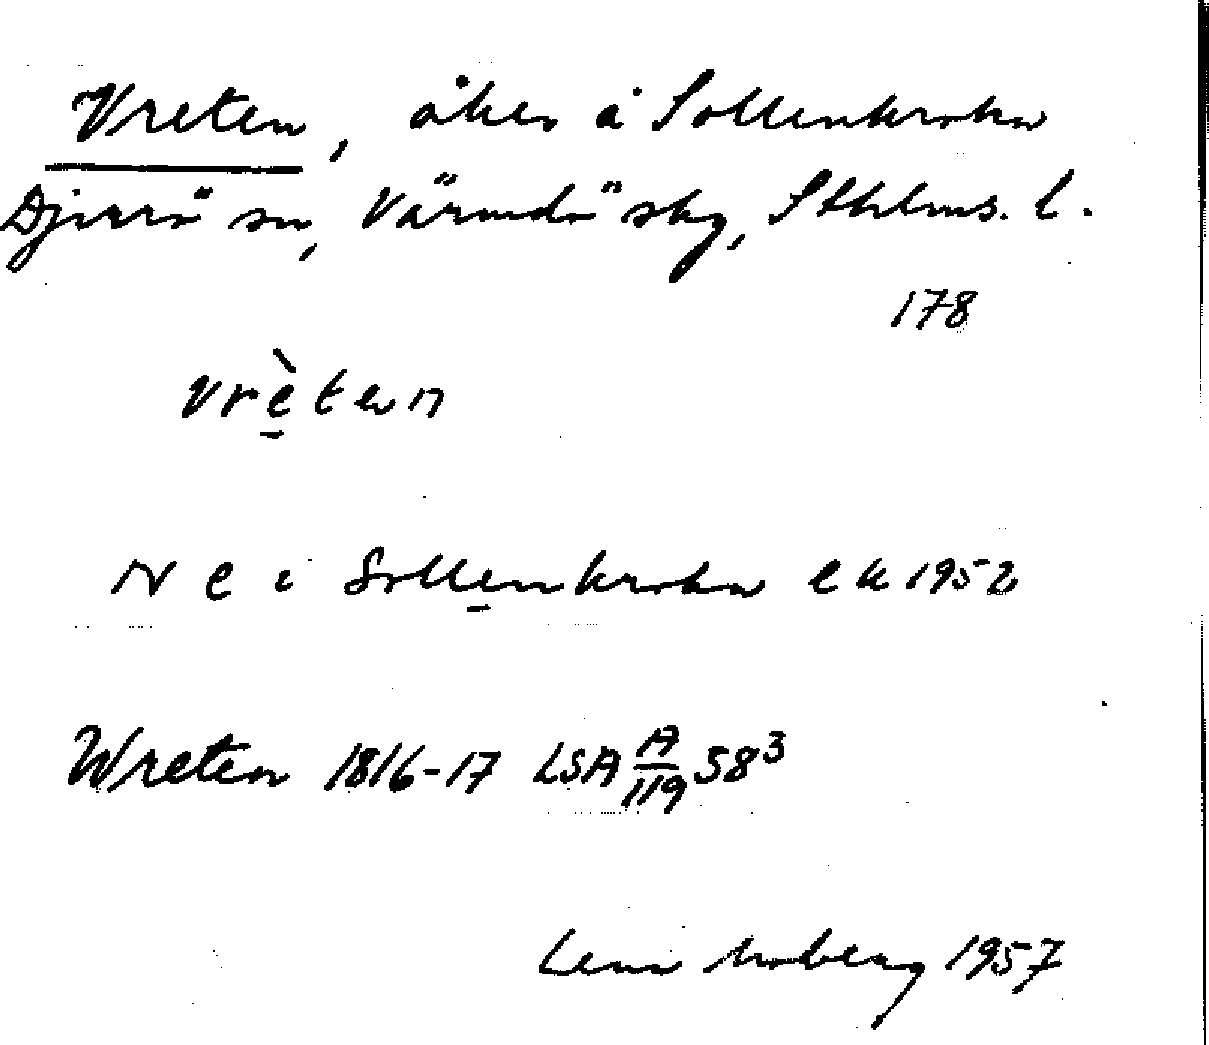 Vreten, åker å Sollenkroka
Djurö sn, Värmdö skg, Sthlms. l.
178
vrèten
N e i Sollenkroka ek 1952
Wreten 1816-17 LSA A/119 58³
Lena Moberg 1957